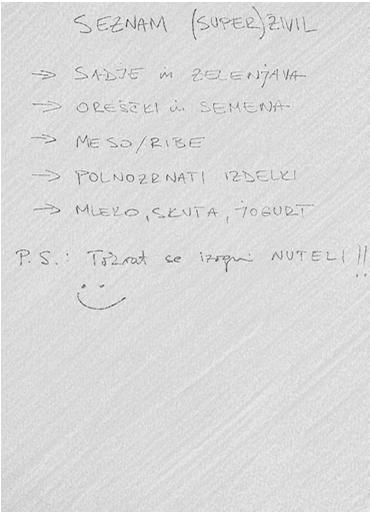 SEZNAM (SUPER)ŽIVIL
→ SADJE in ZELENJAVA
→ OREŠČKI in SEMENA
→ MESO/RIBE
→ POLNOZRNATI IZDELKI
→ MLEKO, SKUTA, JOGURT
P.S.: Tokrat se izogni NUTELI!!